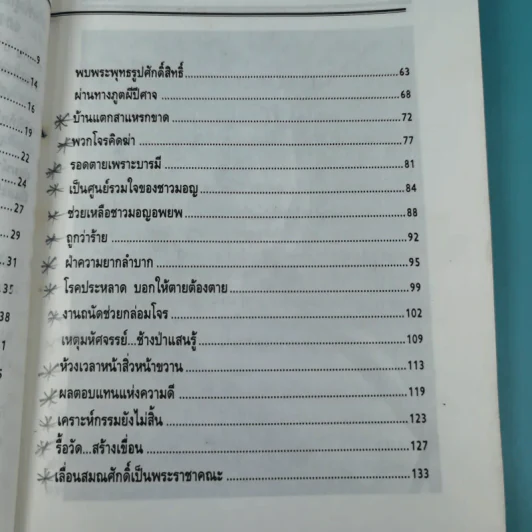 9
14
16
19
22
24
27
29
31
35
38
พบพระพุทธรูปศักดิ์สิทธิ์ 63
ผ่านทางภูตผีปีศาจ 68
บ้านแตกสาแหรกขาด 72
พวกโจรคิดฆ่า 77
รอดตายเพราะบารมี 81
เป็นศูนย์รวมใจของชาวมอญ 84
ช่วยเหลือชาวมอญอพยพ 88
ถูกว่าร้าย 92
ฝ่าความยากลำบาก 95
โรคประหลาด บอกให้ตายต้องตาย 99
งานถนัดช่วยกล่อมโจร 102
เหตุมหัศจรรย์...ช้างป่าแสนรู้ 109
ห้วงเวลาหน้าสิ่วหน้าขวาน 113
ผลตอบแทนแห่งความดี 119
เคราะห์กรรมยังไม่สิ้น 123
รื้อวัด...สร้างเขื่อน 127
เลื่อนสมณศักดิ์เป็นพระราชาคณะ 133